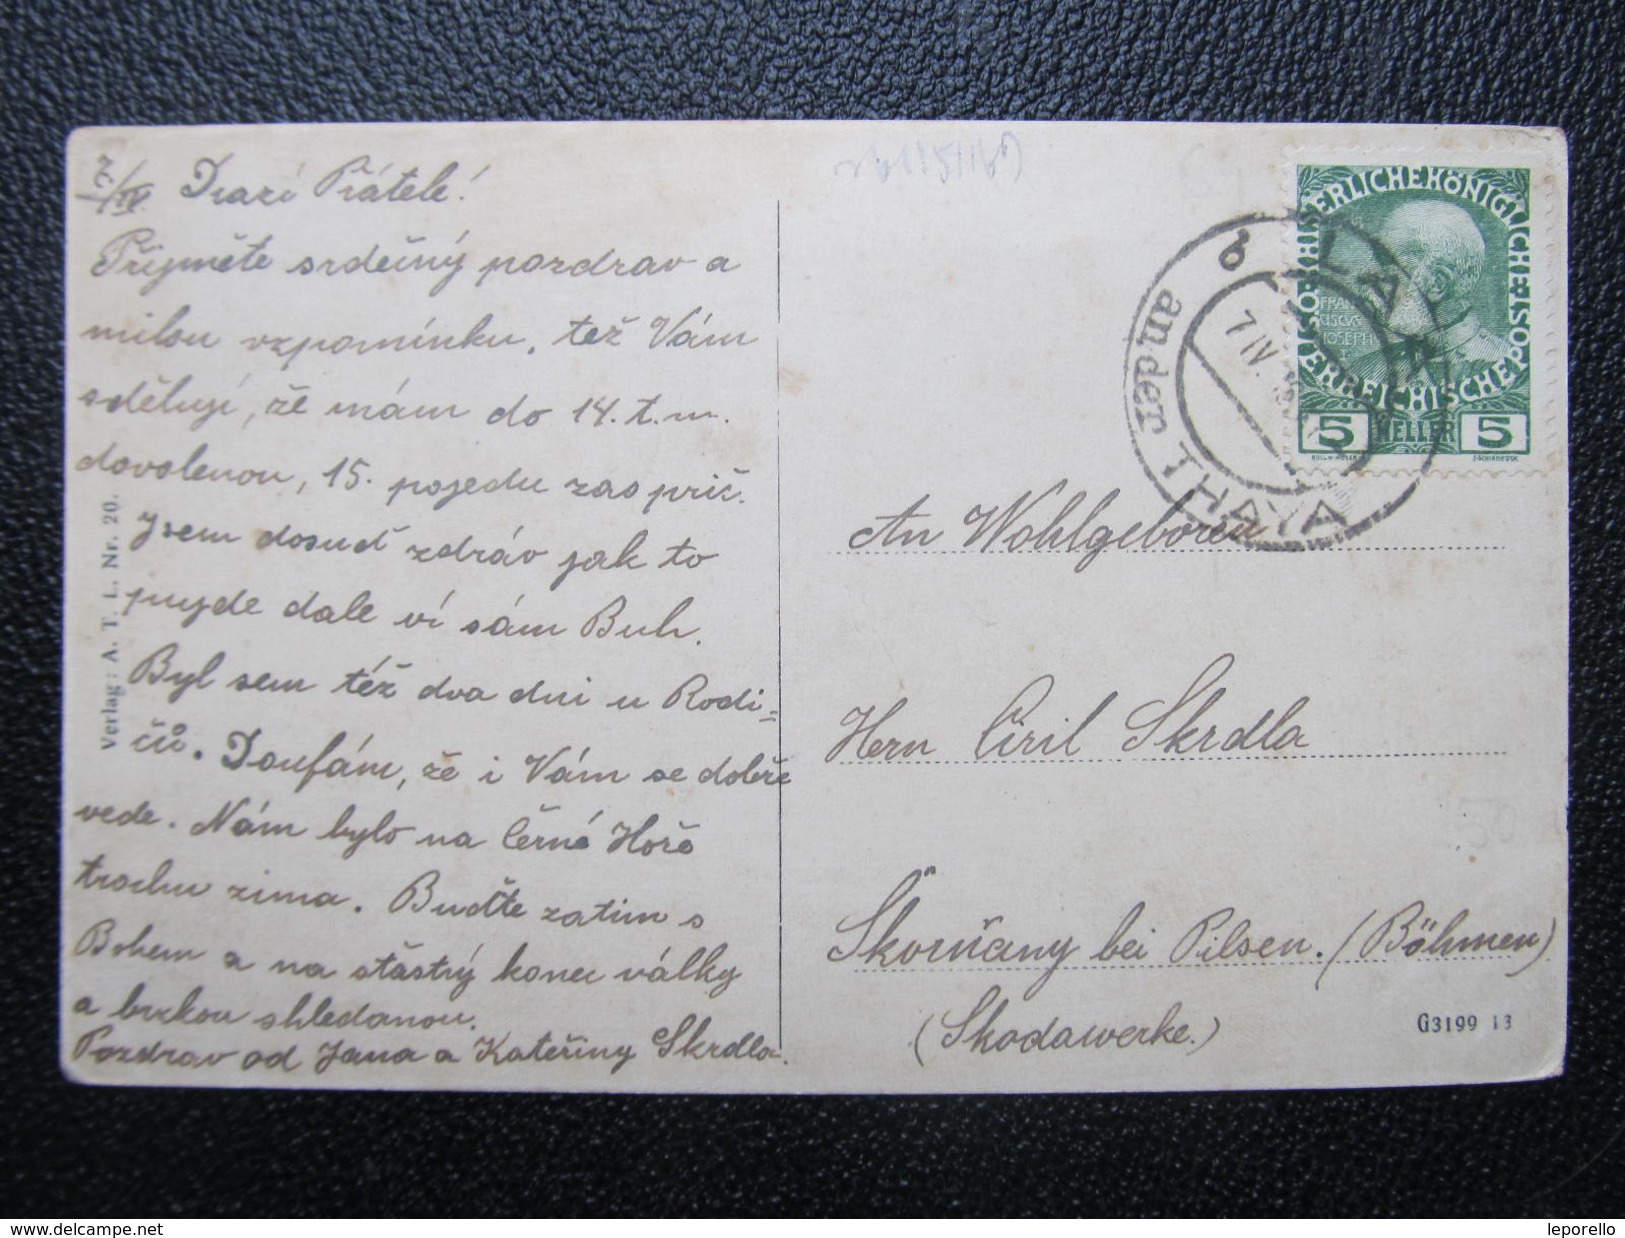 7./IV. Drazí Přátelé!
Přijměte srdečný pozdrav a
milou vzpomínku, též Vám
sděluji, že mám do 14. t. m.
dovolenou, 15. pojedu zas prič.
Jsem dosud zdráv jak to
pujde dale ví sám Buh.
Byl sem též dva dni u Rodi=
čů. Doufám, že i Vám se dobře
vede. Nám bylo na Černé Hoře
trochu zima. Buďte zatim s
Bohem a na stastný konec války
a brzkou shledanou.
Pozdrav od Jana a Kateřiny Skrdla.
Verlag: A. T. L. Nr. 20.
KAISERLICHE KÖNIGLICHE ÖSTERREICHISCHE POST
FRAN
CISCVS
IOSEPH
5 HELLER 5
LAA
an der THAYA
b
7 IV.
An Wohlgeboren
Herrn Ciril Skrdla
Skorňany bei Pilsen. (Böhmen)
(Skodawerke.)
G3199 13
50
www.delcampe.net
leporello